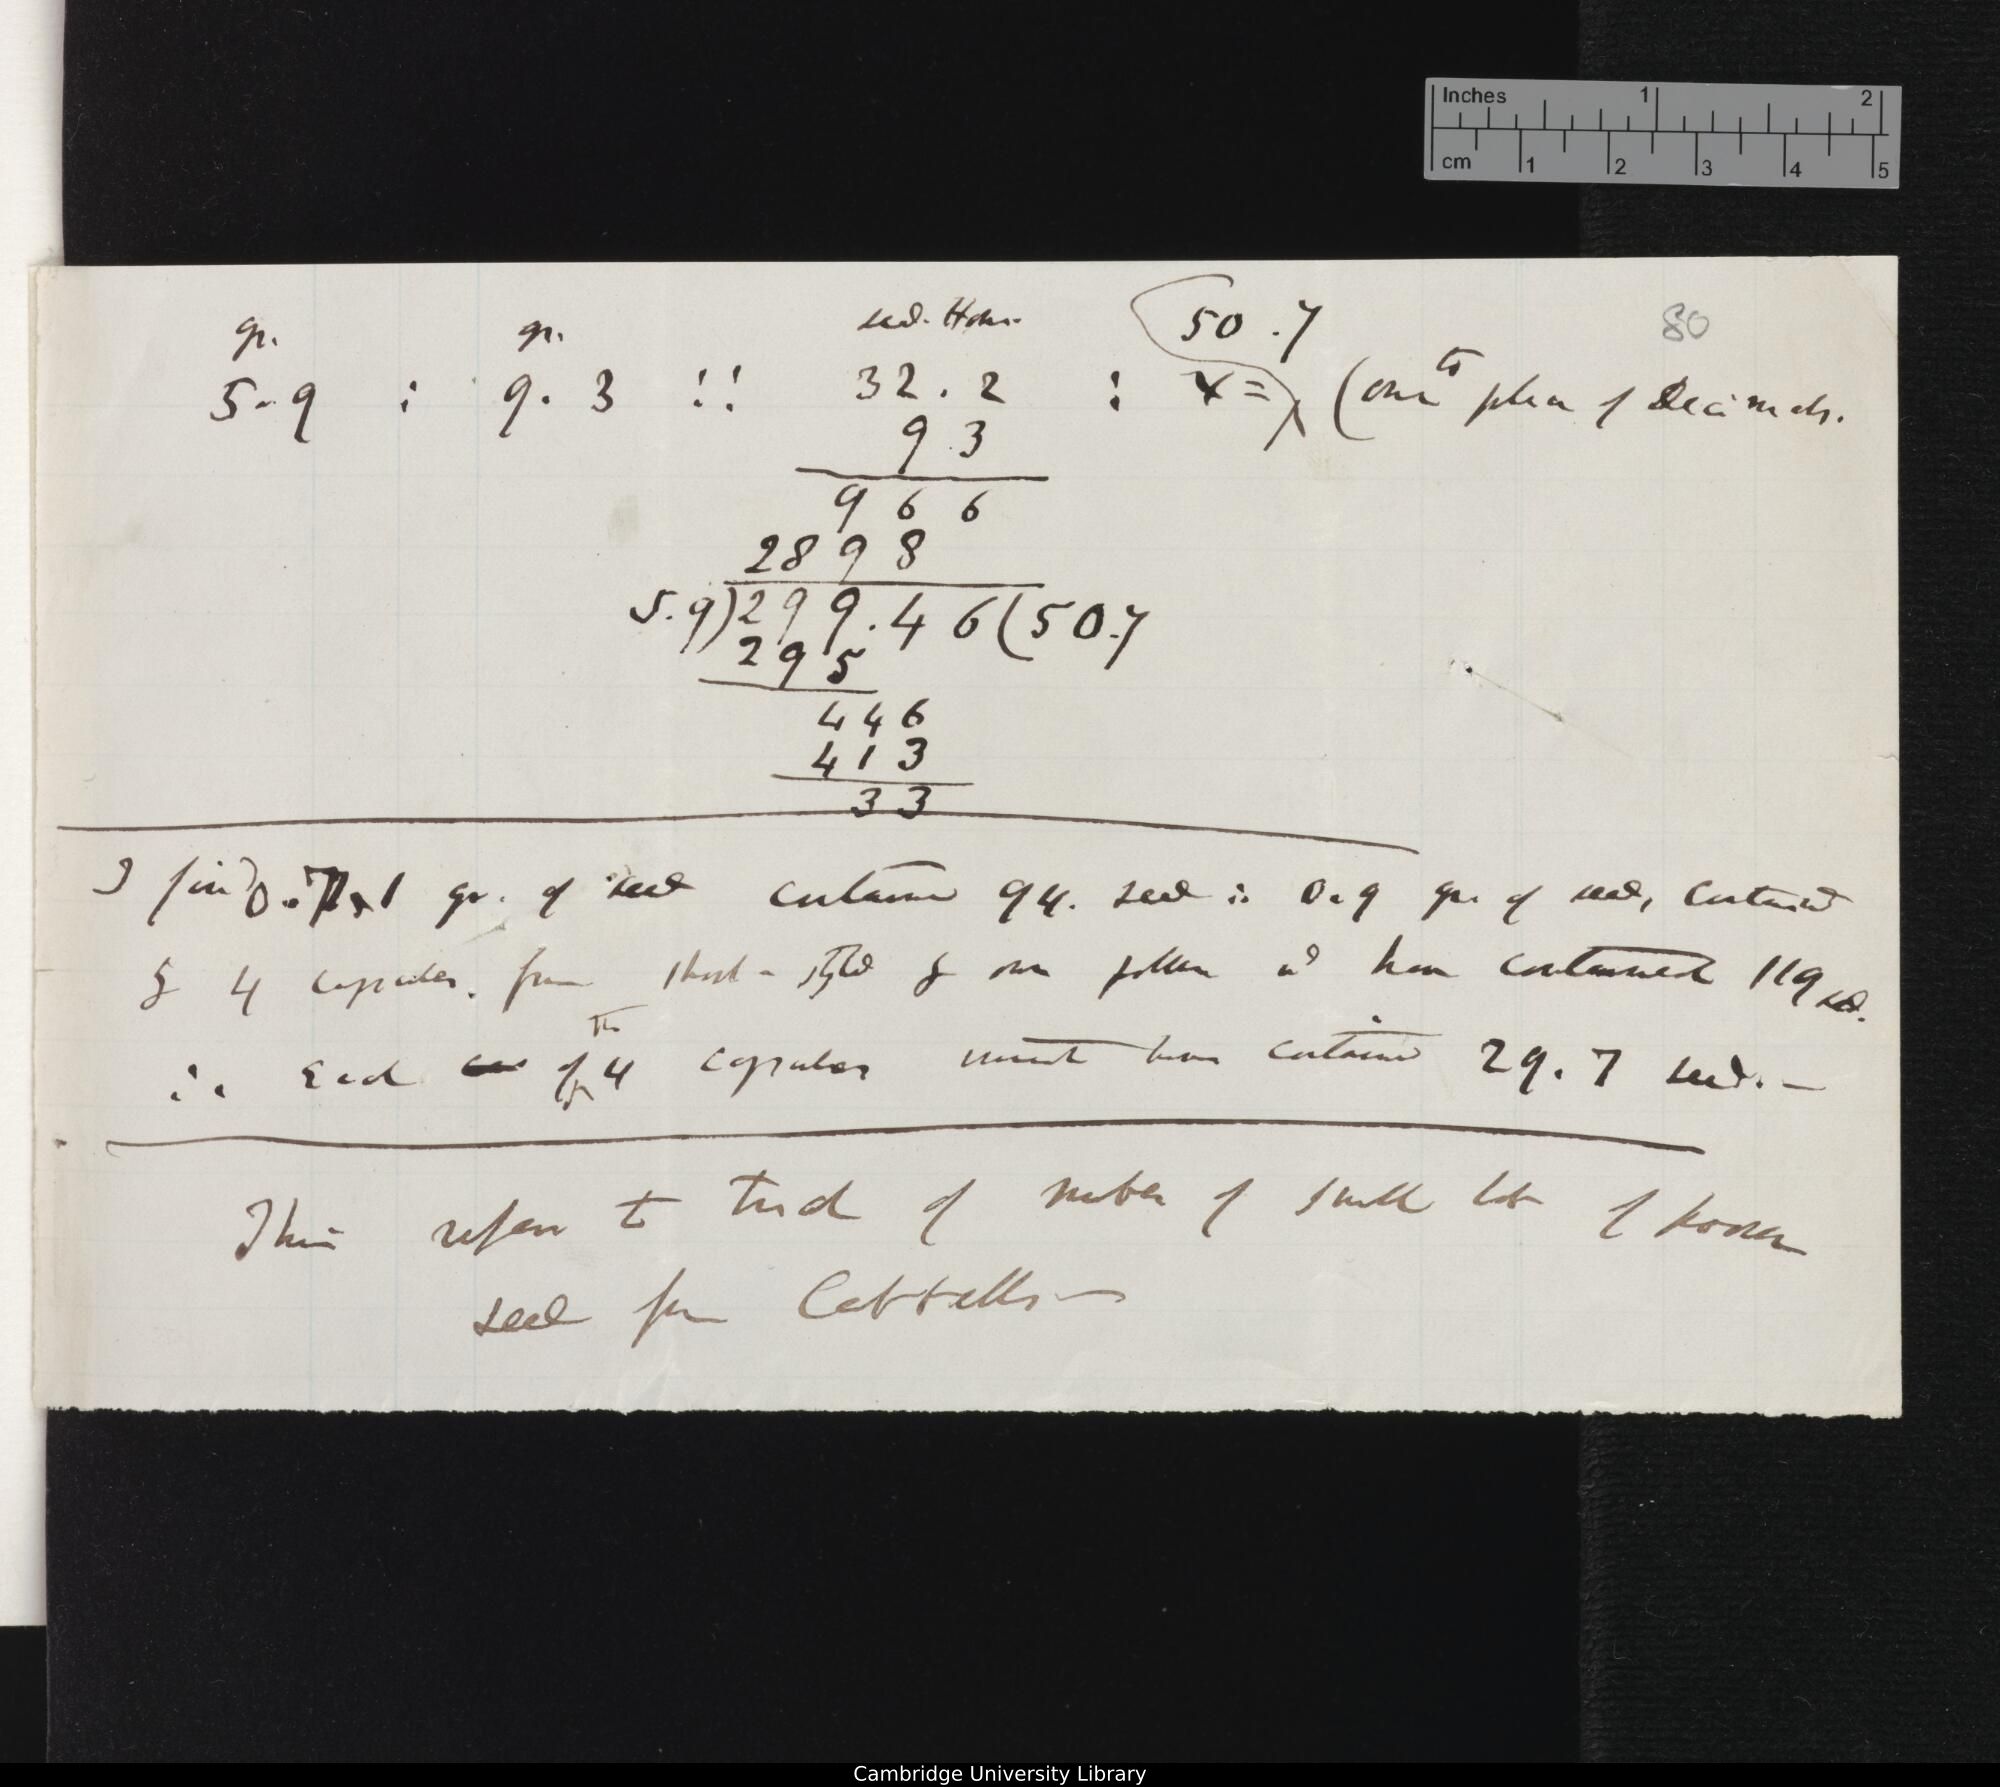 Inches 1 2
cm 1 2 3 4 5
80
gr. gr. seed. Hom. 50.7
5.9 : 9.3 :: 32.2 : x = (one to place of Decimals.
9 3
9 6 6
2 8 9 8
5.9) 2 9 9.4 6 (50.7
2 9 5
4 4 6
4 1 3
3 3
I find 0. 1 gr. of seed contained 94. seed ∴ 0.9 gr. of seed, contained
4 capsules. from short-styled own pollen wd have contained 119 sd.
∴ Each of the 4 capsules must have contained 29.7 seed. —
This refers to trial of number of small lots of
seed from
Cambridge University Library